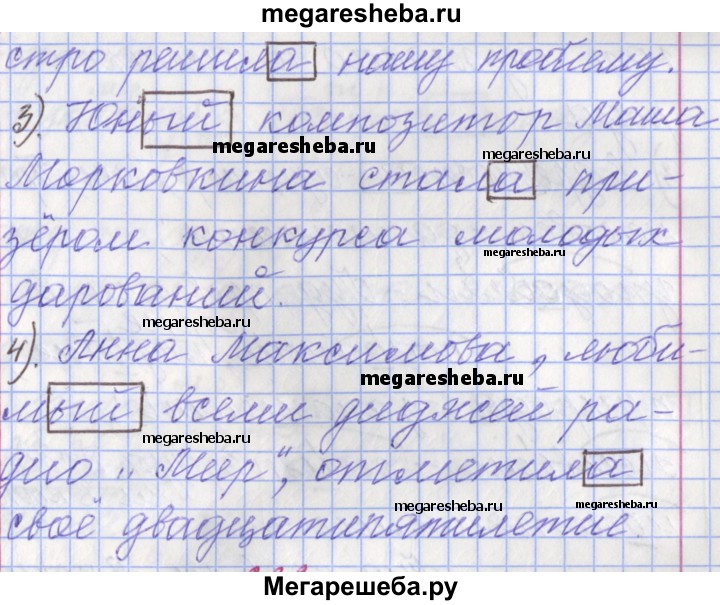 megaresheba.ru
стро решила нашу проблему.
3). Юный композитор Маша
megaresheba.ru
megaresheba.ru
Морковкина стала при-
зёром конкурса молодых
megaresheba.ru
дарований.
megaresheba.ru
4). Анна Максимова, люби-
megaresheba.ru
мый всеми диджей ра-
megaresheba.ru
дио „Мир", отметила
megaresheba.ru
megaresheba.ru
своё двадцатипятилетие.
Мегарешеба.ру